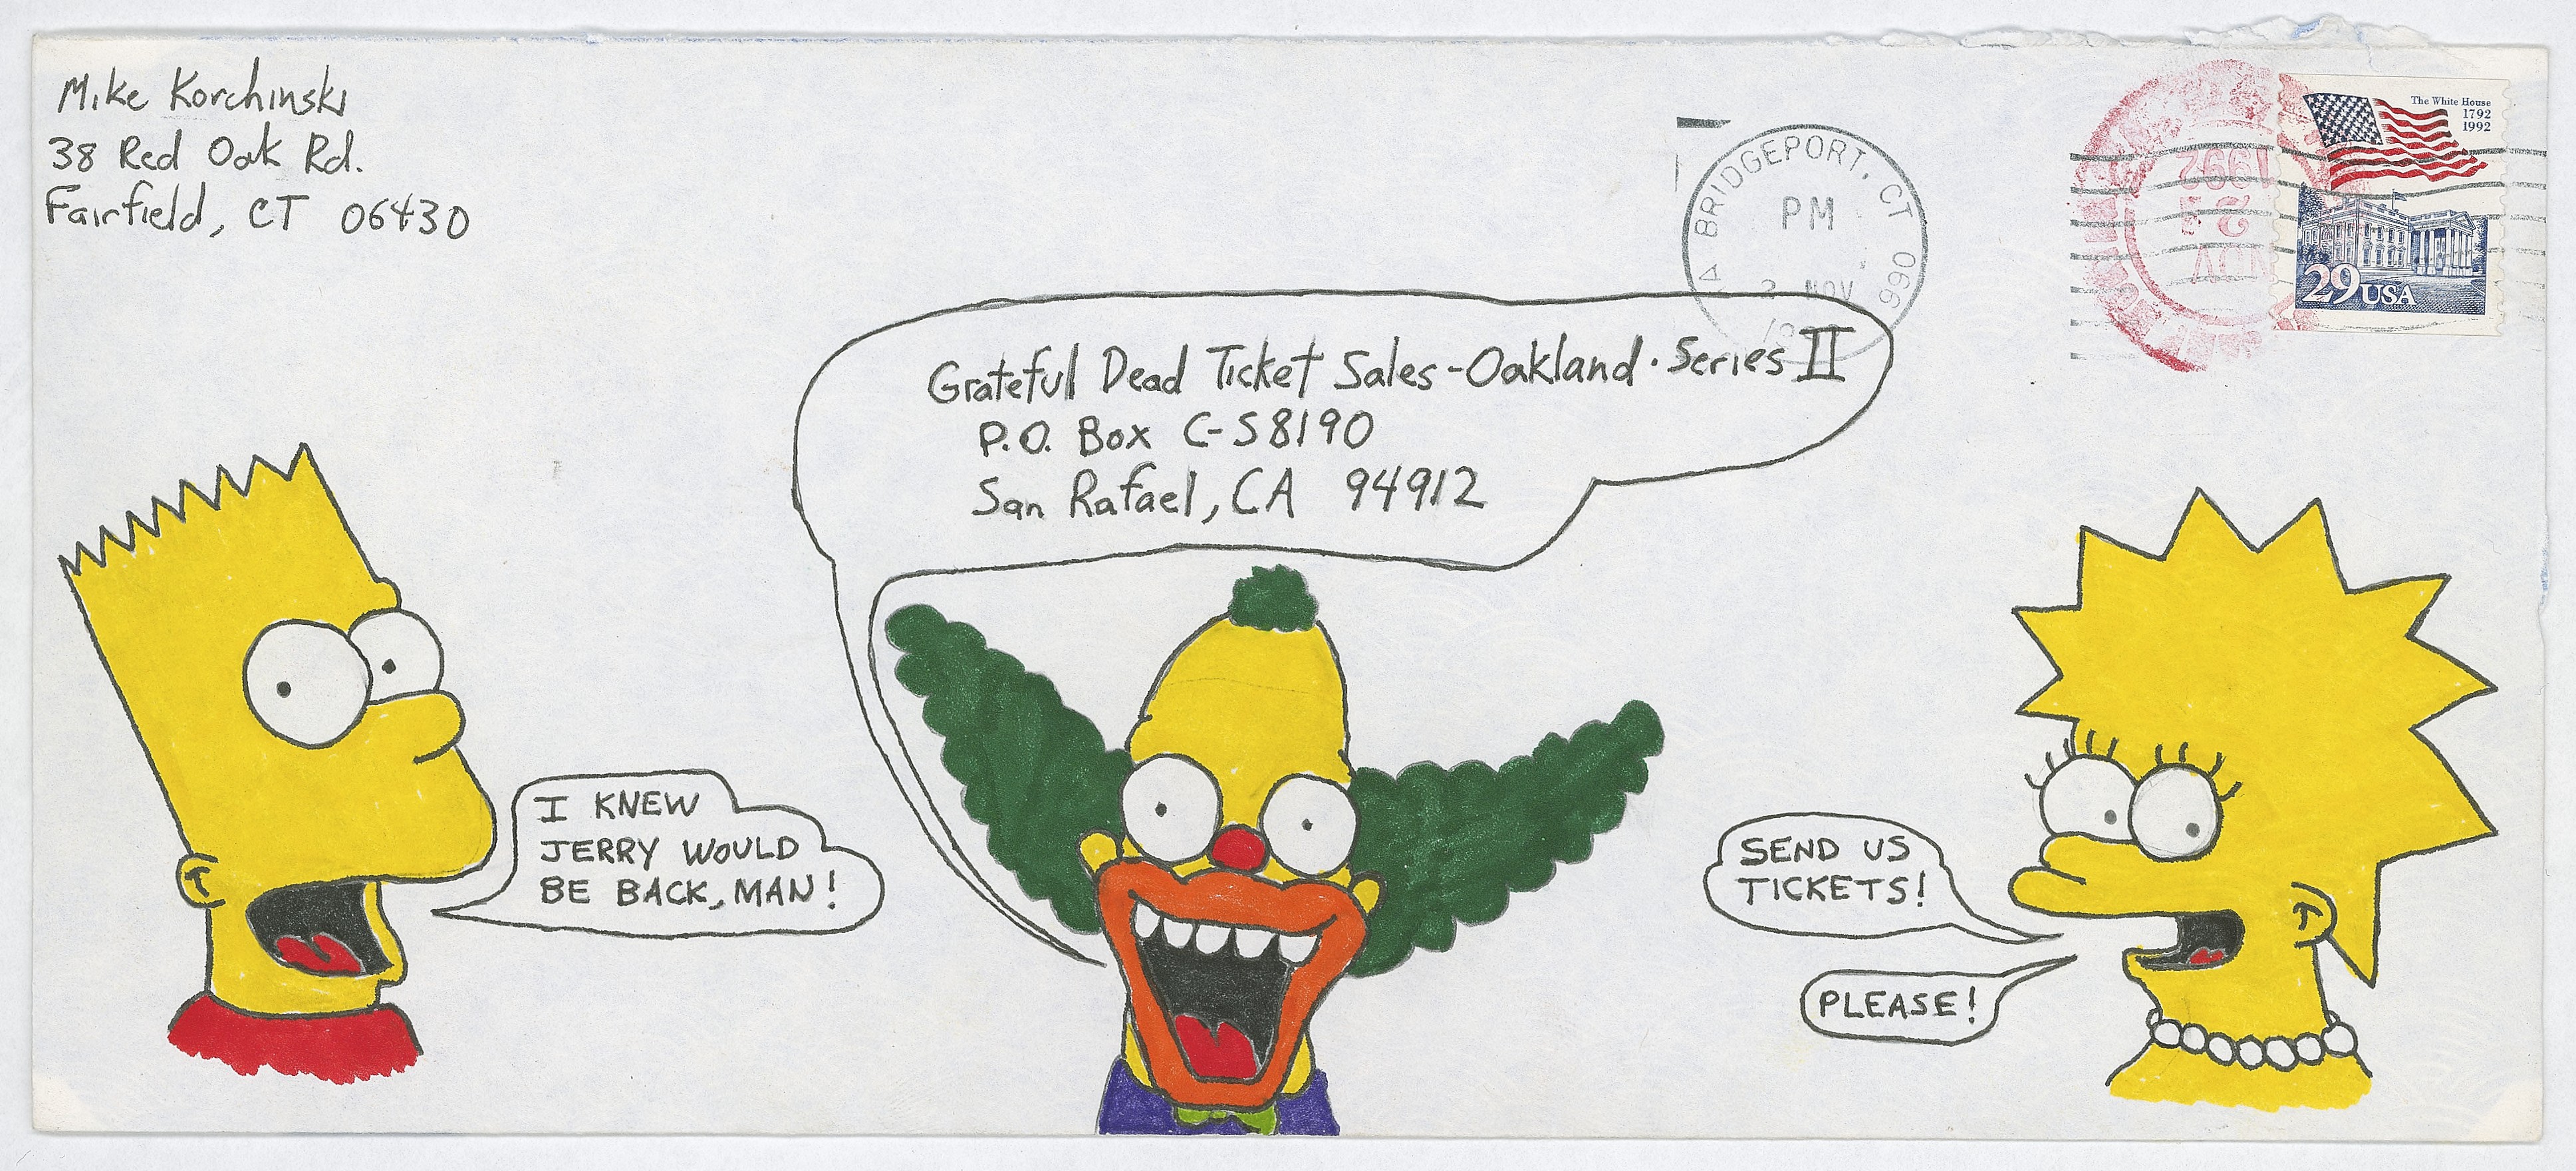 Mike Korchinski
38 Red Oak Rd.
Fairfield, CT 06430
BRIDGEPORT, CT 066
PM
2 NOV
1992
2
NOV
The White House
1792
1992
29 USA
Grateful Dead Ticket Sales - Oakland · Series II
P.O. Box C-S8190
San Rafael, CA 94912
I KNEW
JERRY WOULD
BE BACK, MAN!
SEND US
TICKETS!
PLEASE!